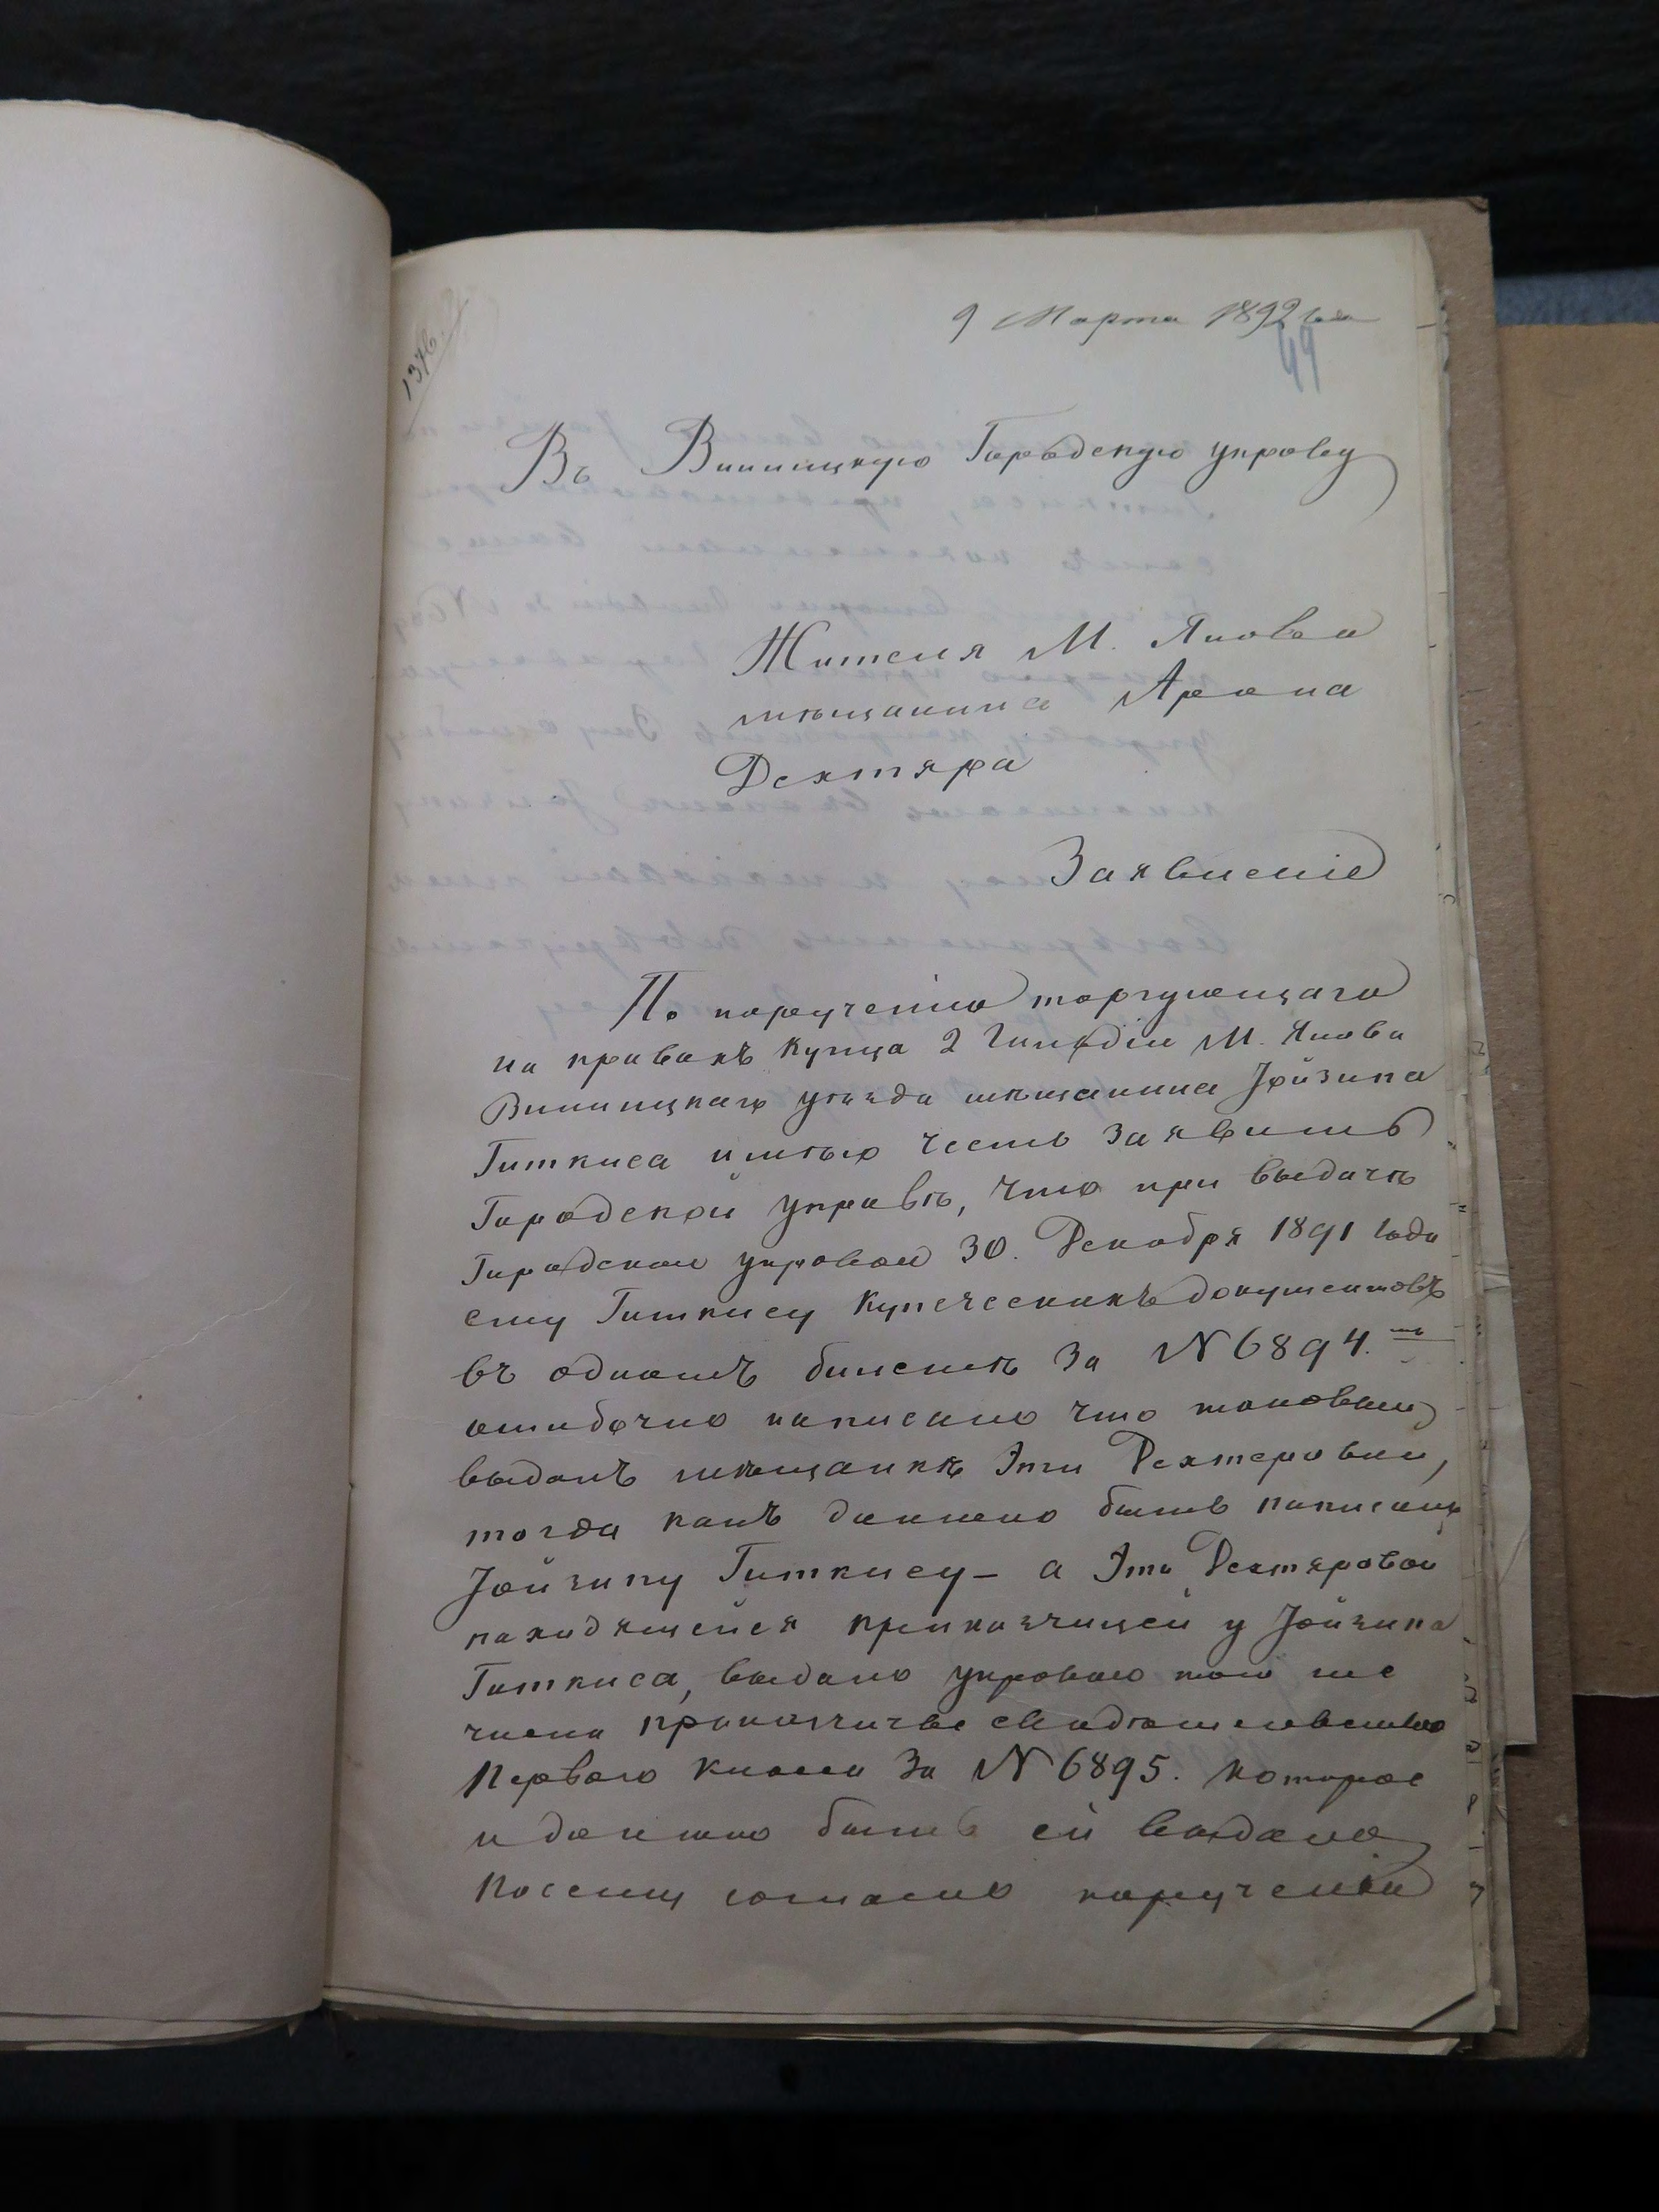 1376
9 Марта 1892 года
49
Въ Винницкую Городскую управу
Жителя М. Янова
мѣщанина Арона
Дехтяра
Заявленіе
По порученію торгующаго
на правахъ купца 2 Гильдіи М. Янова
Винницкаго уѣзда мѣщанина Іойзипа
Гиткиса имѣю честь заявить
Городской управѣ, что при выдачѣ
Городской управой 30. Декабря 1891 года
ему Гиткису купеческихъ документовъ
въ одномъ билетѣ за №6894.
ошибочно написано что таковый
выданъ мѣщанкѣ Эти Дехтеровой,
тогда какъ должно быть написано
Іойзипу Гиткису – а Эти Дехтяровой
находящейся приказчицей у Іойзипа
Гиткиса, выдано управою того же
числа приказчичье свидѣтельство
Перваго класса за №6895. которое
и должно быть ей выдано
Посему согласно порученія